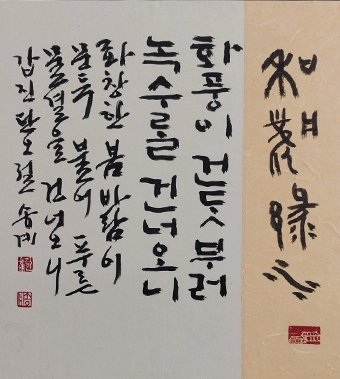 和風綠水
화풍이 건듯 부러
녹수를 건너오니
화창한 봄 바람이
문득 불어 푸른
물결을 건너오니
갑진 단오절